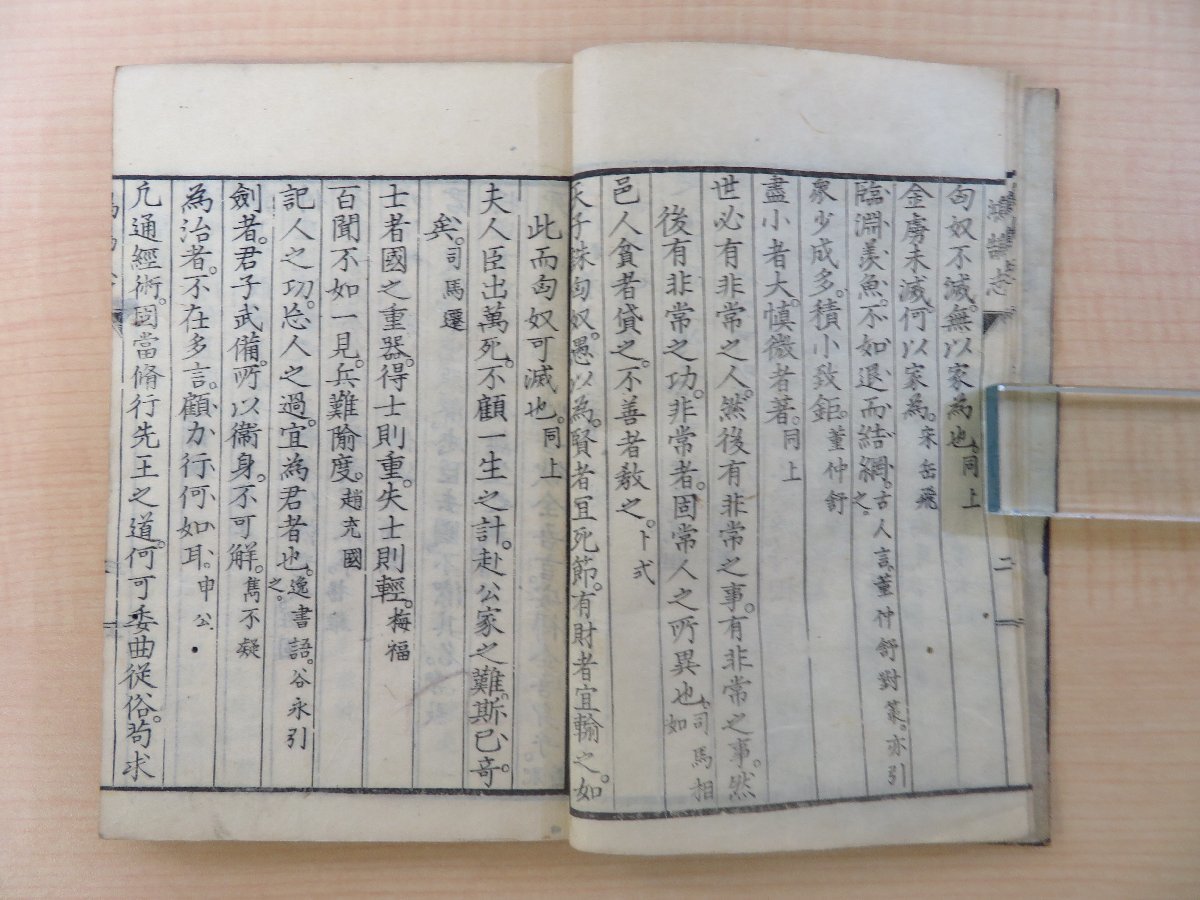 匈奴不滅。無以家為也。同上
金虜未滅。何以家為。宋岳飛
臨淵羨魚。不如退而結網。古人言。董仲舒對策。亦引之。
衆少成多。積小致鉅。董仲舒
盡小者大。慎微者著。同上
世必有非常之人。然後有非常之事。有非常之事。然
後有非常之功。非常者。固常人之所異也。司馬相如
邑人貧者貸之。不善者教之。卜式
天子誅匈奴。愚以為。賢者宜死節。有財者宜輸之。如
此而匈奴可滅也。同上
夫人臣出萬死。不顧一生之計。赴公家之難。斯已奇
矣。司馬遷
士者國之重器。得士則重。失士則輕。梅福
百聞不如一見。兵難隃度。趙充國
記人之功。忘人之過。宜為君者也。逸書語。谷永引之。
劍者。君子武備。所以衞身。不可解。雋不疑
為治者。不在多言。顧力行何如耳。申公
凡通經術。固當脩行先王之道。何可委曲從俗。苟求
二